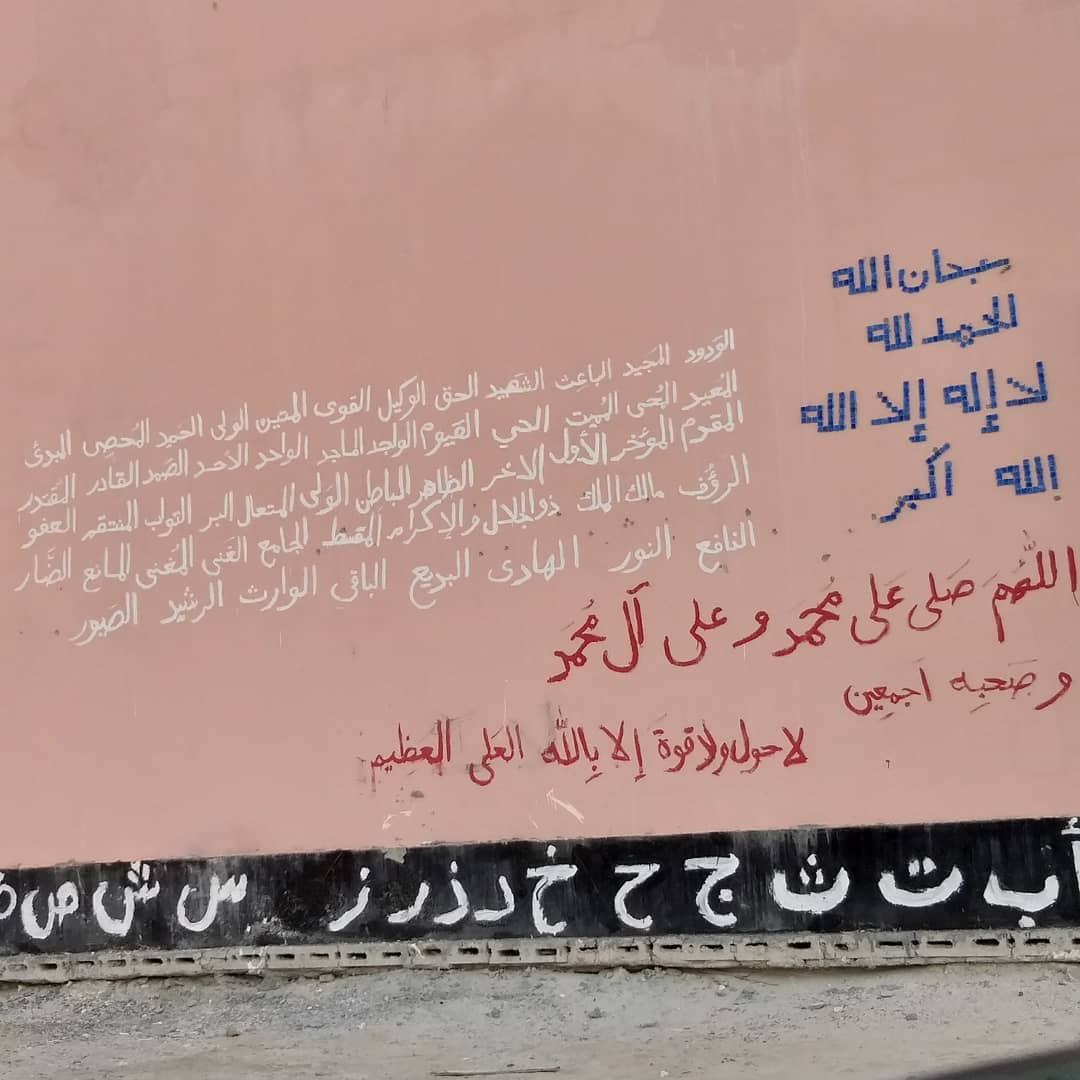 سبحان الله
الحمد لله
لا إله إلا الله
الله اكبر
الودود المجيد الباعث الشهيد الحق الوكيل القوى المتين الولى الحمد المحصى المبدئ
المعيد المحى المميت الحي القيوم الواجد الماجد الواحد الأحد الصمد القادر المقتدر
المقدم المؤخر الأول الاخر الظاهر الباطن الوالى المتعال البر التواب المنتقم العفو
الرؤف مالك الملك ذو الجلال والإكرام المقسط الجامع الغنى المغنى المانع الضار
النافع النور الهادى البديع الباقى الوارث الرشيد الصبور
اللّٰهُم صَلى عَلى مُحمَد و على آل مُحمَد
و صَحبِه اجمعِين
لا حول ولا قوة إلا بِاللّٰه العَلى العَظِيم
أ ب ت ث ج ح خ د ذ ر ز س ش ص ض